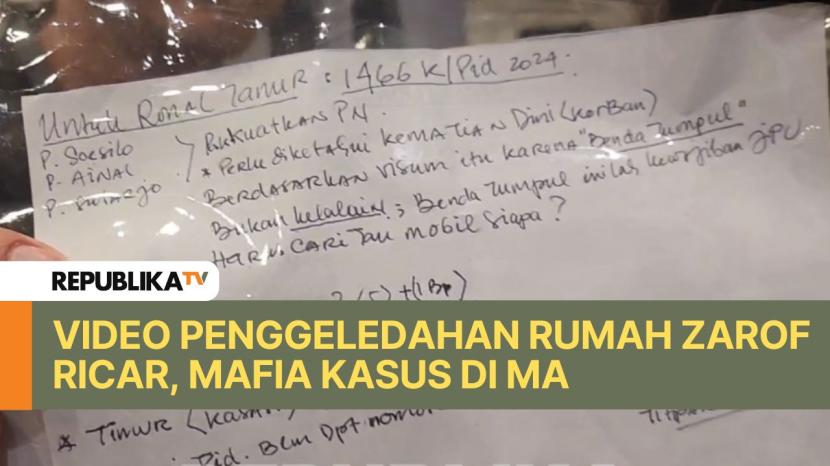 Untuk Ronal Tanur : 1466 K/Pid 2024.
P. Soesilo
P. AINAL
P. Sutarjo
KuatKAN PN.
* Perlu diketahui KEMATIAN Dini (KorBan)
BERDASARKAN visum itu KARENA "BENDA TUMPUL"
Bukan Kelalain; Benda Tumpul inilah kewajiban JPU
HARUS CARI Tau mobil Siapa?
(5) + (1 Bp)
REPUBLIKA TV
VIDEO PENGGELEDAHAN RUMAH ZAROF
RICAR, MAFIA KASUS DI MA
* TIMUR
Pid. Blm Dpt nomor